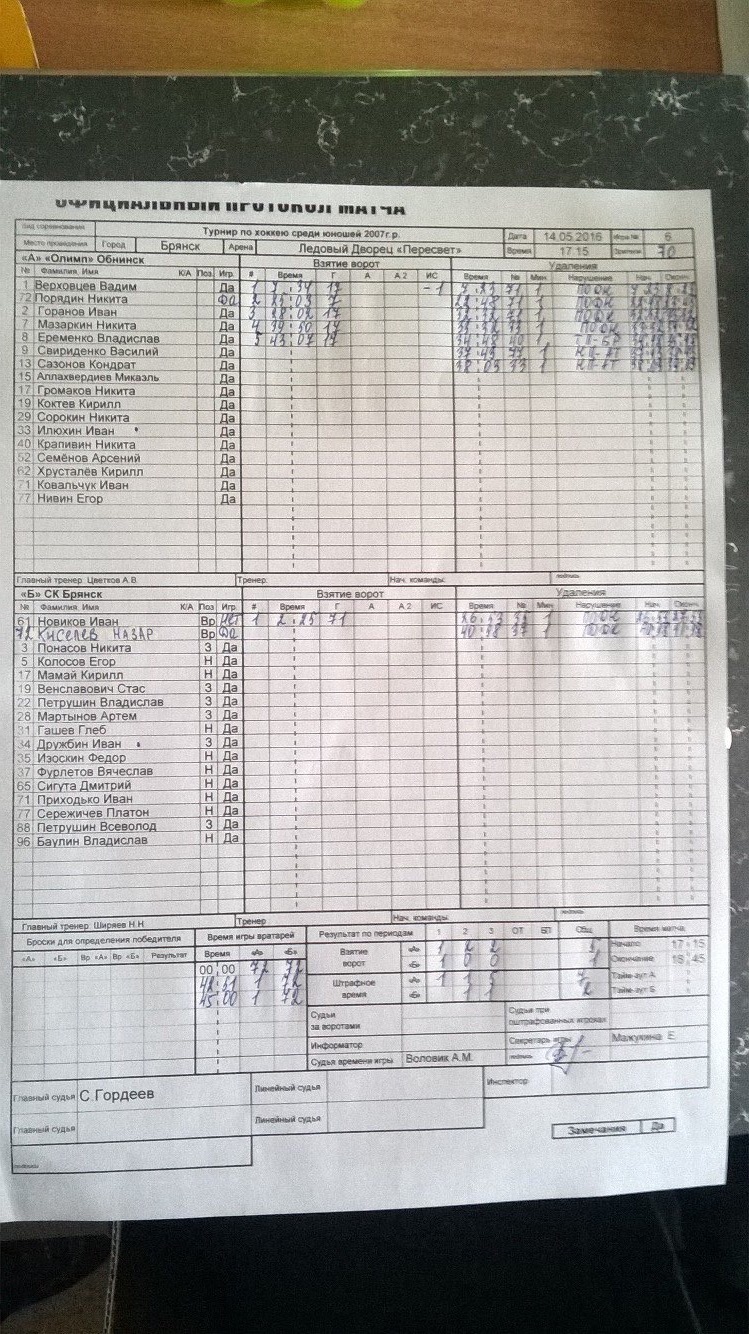 ОФИЦИАЛЬНЫЙ ПРОТОКОЛ МАТЧА
Вид соревнования Турнир по хоккею среди юношей 2007г.р. Дата 14.05.2016 Игра № 6
Место проведения Город Брянск Арена Ледовый Дворец «Пересвет» Время 17.15 Зрители 70
«А» «Олимп» Обнинск Взятие ворот Удаления
№ Фамилия, Имя К/А Поз. Игр. # Время Г А А2 ИС Время № Мин Нарушение Нач. Оконч.
1 Верховцев Вадим Да 1 7 34 17 -1 7 23 71 1
72 Порядин Никита Да 2 23 03 7
2 Горанов Иван Да 3 28 02 17
7 Мазаркин Никита Да 4 39 50 17
8 Еременко Владислав Да 5 43 07 17
9 Свириденко Василий Да
13 Сазонов Кондрат Да
15 Аллахвердиев Микаэль Да
17 Громаков Никита Да
19 Коктев Кирилл Да
29 Сорокин Никита Да
33 Илюхин Иван Да
40 Крапивин Никита Да
52 Семёнов Арсений Да
62 Хрусталёв Кирилл Да
71 Ковальчук Иван Да
77 Нивин Егор Да
Главный тренер: Цветков А.В. Тренер: Нач. команды: подпись
«Б» СК Брянск Взятие ворот Удаления
№ Фамилия, Имя К/А Поз Игр. # Время Г А А2 ИС Время № Мин Нарушение Нач. Оконч.
61 Новиков Иван Вр Нет 1 2 25 71
72 Киселев Назар Вр Да
3 Понасов Никита З Да
5 Колосов Егор Н Да
17 Мамай Кирилл Н Да
19 Венславович Стас З Да
22 Петрушин Владислав З Да
28 Мартынов Артем З Да
31 Гашев Глеб Н Да
34 Дружбин Иван З Да
35 Изоскин Федор Н Да
37 Фурлетов Вячеслав Н Да
65 Сигута Дмитрий Н Да
71 Приходько Иван Н Да
77 Сережичев Платон Н Да
88 Петрушин Всеволод З Да
96 Баулин Владислав Н Да
Главный тренер: Ширяев Н.Н. Тренер Нач. команды: подпись
Броски для определения победителя Время игры вратарей Результат по периодам 1 2 3 ОТ БП Общ Время матча
«А» «Б» Вр «А» Вр «Б» Результат Время «А» «Б»
Взятие ворот «А» 1 2 2 5 Начало 17 15
«Б» 1 0 0 1 Окончание 18 45
00 00 72 72
Штрафное время «А» 1 1 5 Тайм-аут А
«Б» 1 1 2 Тайм-аут Б
1 72
45 00 1 72
Судьи за воротами Судья при оштрафованных игроках
Информатор Секретарь игры Мажукина Е.
Судья времени игры Воловик А.М. подпись
Главный судья С.Гордеев Линейный судья Инспектор
Главный судья Линейный судья
Замечания Да
подпись